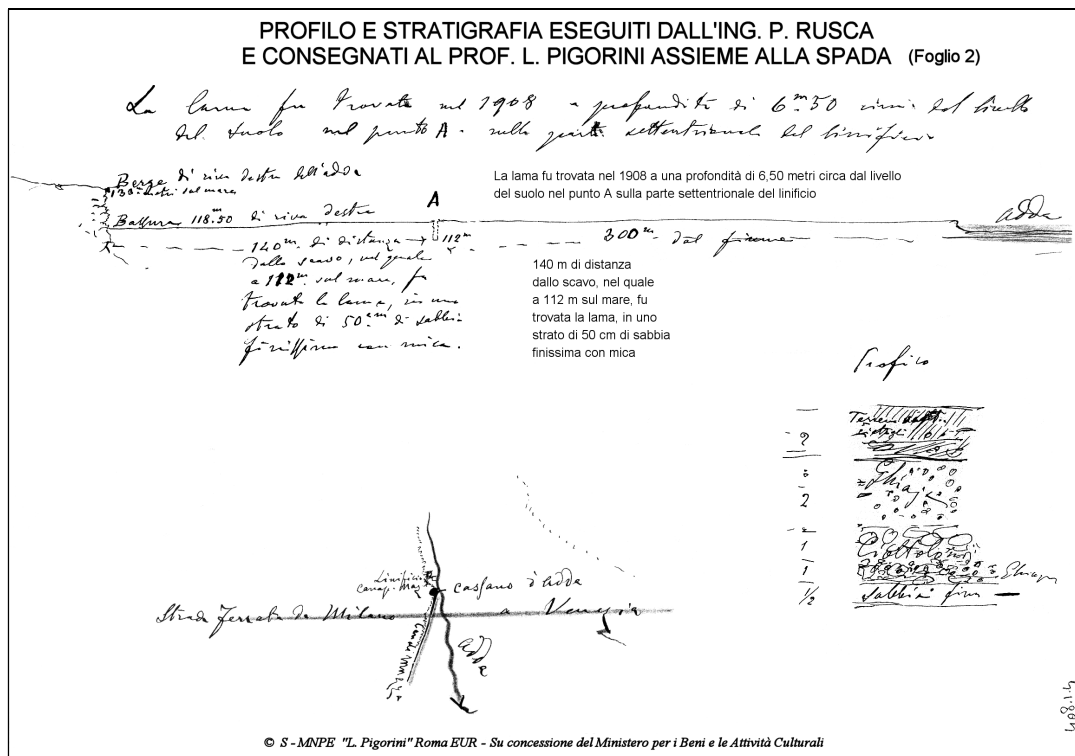 PROFILO E STRATIGRAFIA ESEGUITI DALL'ING. P. RUSCA
E CONSEGNATI AL PROF. L. PIGORINI ASSIEME ALLA SPADA (Foglio 2)
La lama fu trovata nel 1908 a profondità di 6.m50 circa dal livello
del suolo nel punto A. sulla parte settentrionale del linificio
La lama fu trovata nel 1908 a una profondità di 6,50 metri circa dal livello
del suolo nel punto A sulla parte settentrionale del linificio
Berge di riva destra dell'adda
metri sul mare
A
Bassura 118.m50 di riva destra
adda
140m. di distanza
112m
300m. dal fiume
dallo scavo, nel quale
a 112m. sul mare, fu
trovata la lama, in uno
strato di 50.cm di sabbia
finissima con mica.
140 m di distanza
dallo scavo, nel quale
a 112 m sul mare, fu
trovata la lama, in uno
strato di 50 cm di sabbia
finissima con mica
Profilo
Ghiaja
2
1
Ciottoloni
1
Ghiaja
1/2 Sabbia fina
Linificio
cassano d'adda
Strada Ferrata da Milano a Venezia
adda
© S - MNPE "L. Pigorini" Roma EUR - Su concessione del Ministero per i Beni e le Attività Culturali